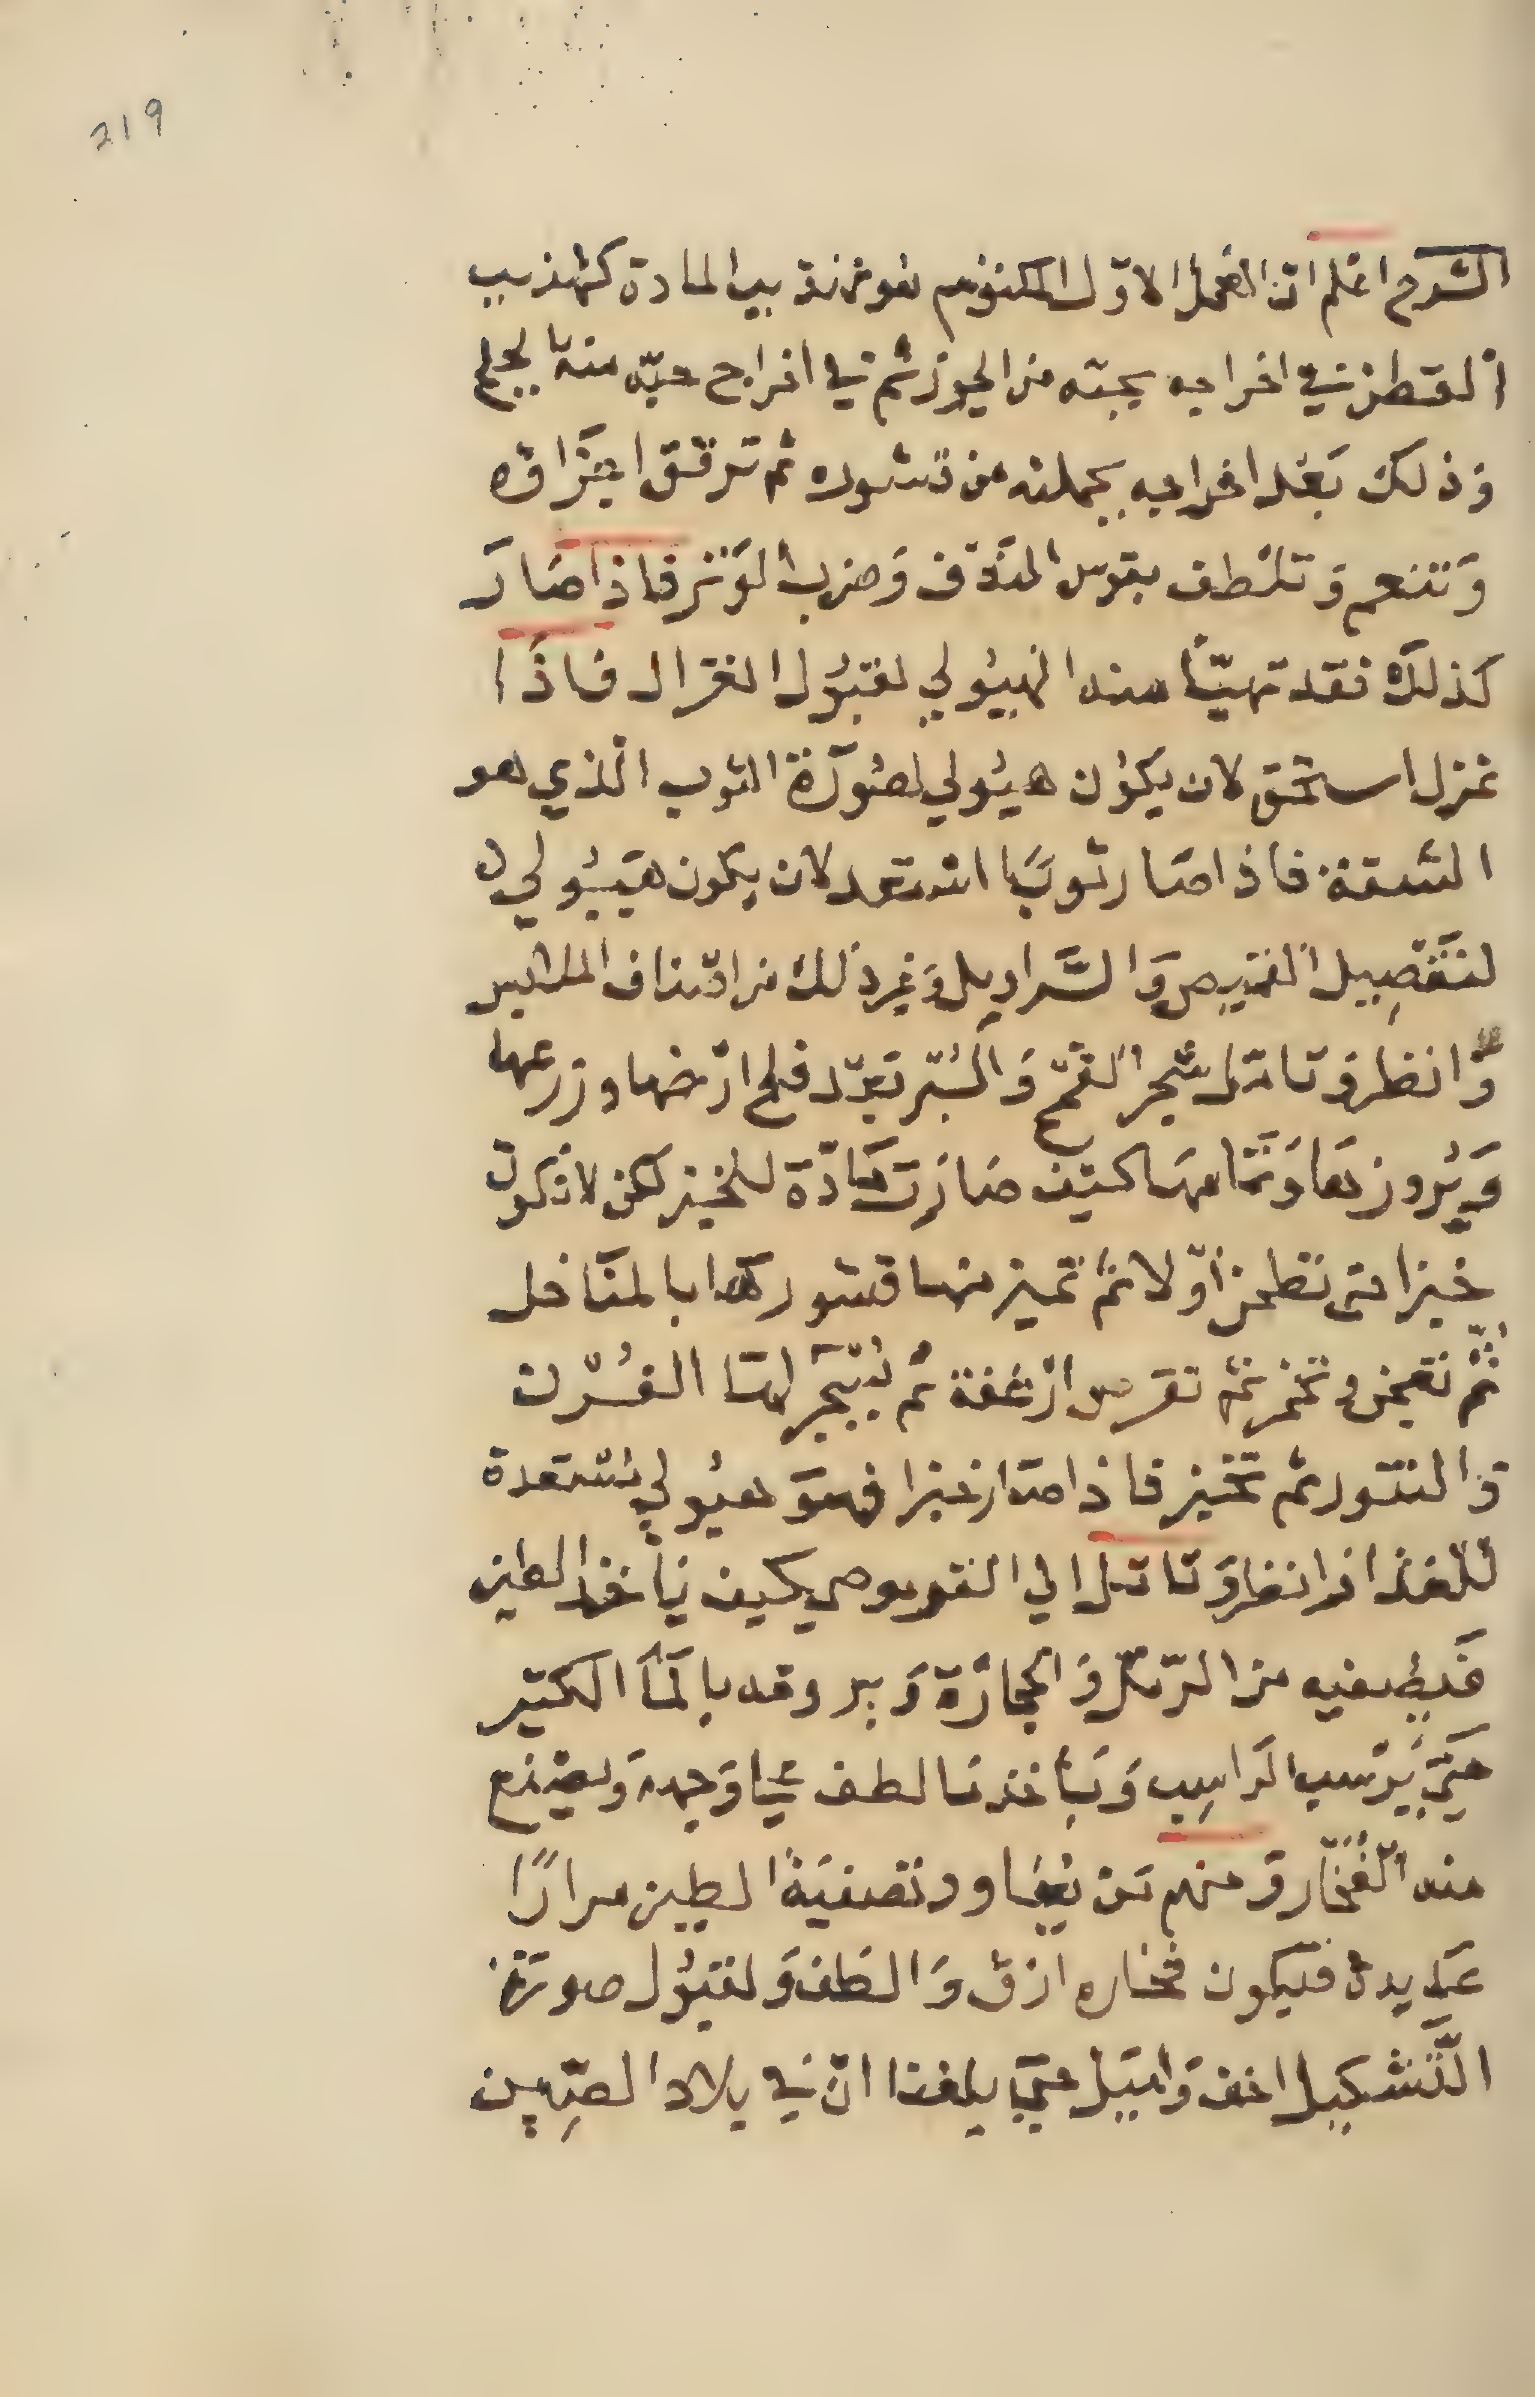 219
الشرح اعلم ان العمل الاول المكتوم هو عن تدبير المادة كتهذيب
القطن في اخراجه بحبه من الجوز ثم في اخراج حبه منه بالحلج
وذلك بعد اخراجه بجملته من قشوره ثم ترقق اجزاؤه
وتنعم وتلطف بقوس المندف وضرب الوتر فاذا صار
كذلك فقد تهيّأ منه الهيولي لقبول الغزل فاذا
غزل استحق لان يكون هيولي لصورة الثوب الذي هو
الشقة فاذا صار ثوبًا استعد لان يكون هيولي
لتفصيل القميص والسراويل وغير ذلك من اصناف الملابس
وانظر وتامل شجر القمح والبر بعد فلح ارضها وزرعها
وبروزها وتمامها كيف صارت مادة للخبز لكن لا تكون
خبزا حتى تطحن اولا ثم تميز منها قشورها بالمناخل
ثم تعجن وتخمر ثم تقرص ارغفة ثم يسجر لها الفرن
والتنور ثم تخبز فاذا صار خبزا فهو هيولي مستعدة
للغذا وانظر وتامل الي القرموصي كيف ياخذ الطين
فيصفيه من الرمل والحجارة ويروقه بالمآ الكثير
حتي يرسب الراسب وياخذ ما لطف علي وجهه ويصنع
منه الفخار ومنهم من يعاود تصفية الطين مرارًا
عديدة فيكون فخاره ارق والطف ولقبول صورة
التشكيل اخف واميل حتي بلغنا ان في بلاد الصين